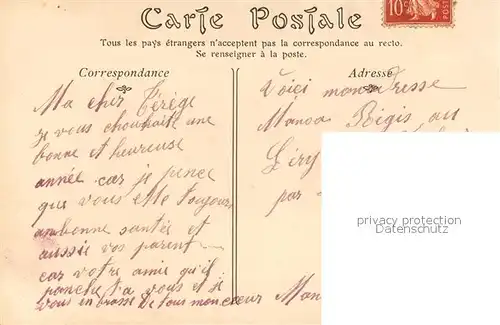 Carte Postale
10c
POSTES
Tous les pays étrangers n'acceptent pas la correspondance au recto.
Se renseigner à la poste.
Correspondance
Adresse
Ma cher Térège
je vous chouhaite une
bonne et heureuse
année car je pence
que vous ette toujours
ambonne santée et
aussie vos parent
car votre amie qu'il
panche ta vous et je
vous enbrasse de tous mon cœur
Voici mon adresse
Manoa Régis au
Léry
par
Man
privacy protection
Datenschutz